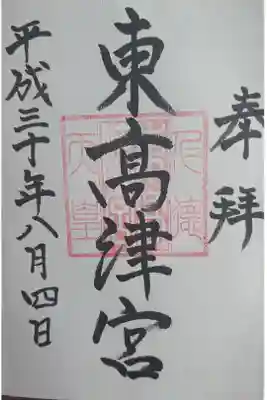 奉拝
東髙津宮
平成三十年八月四日